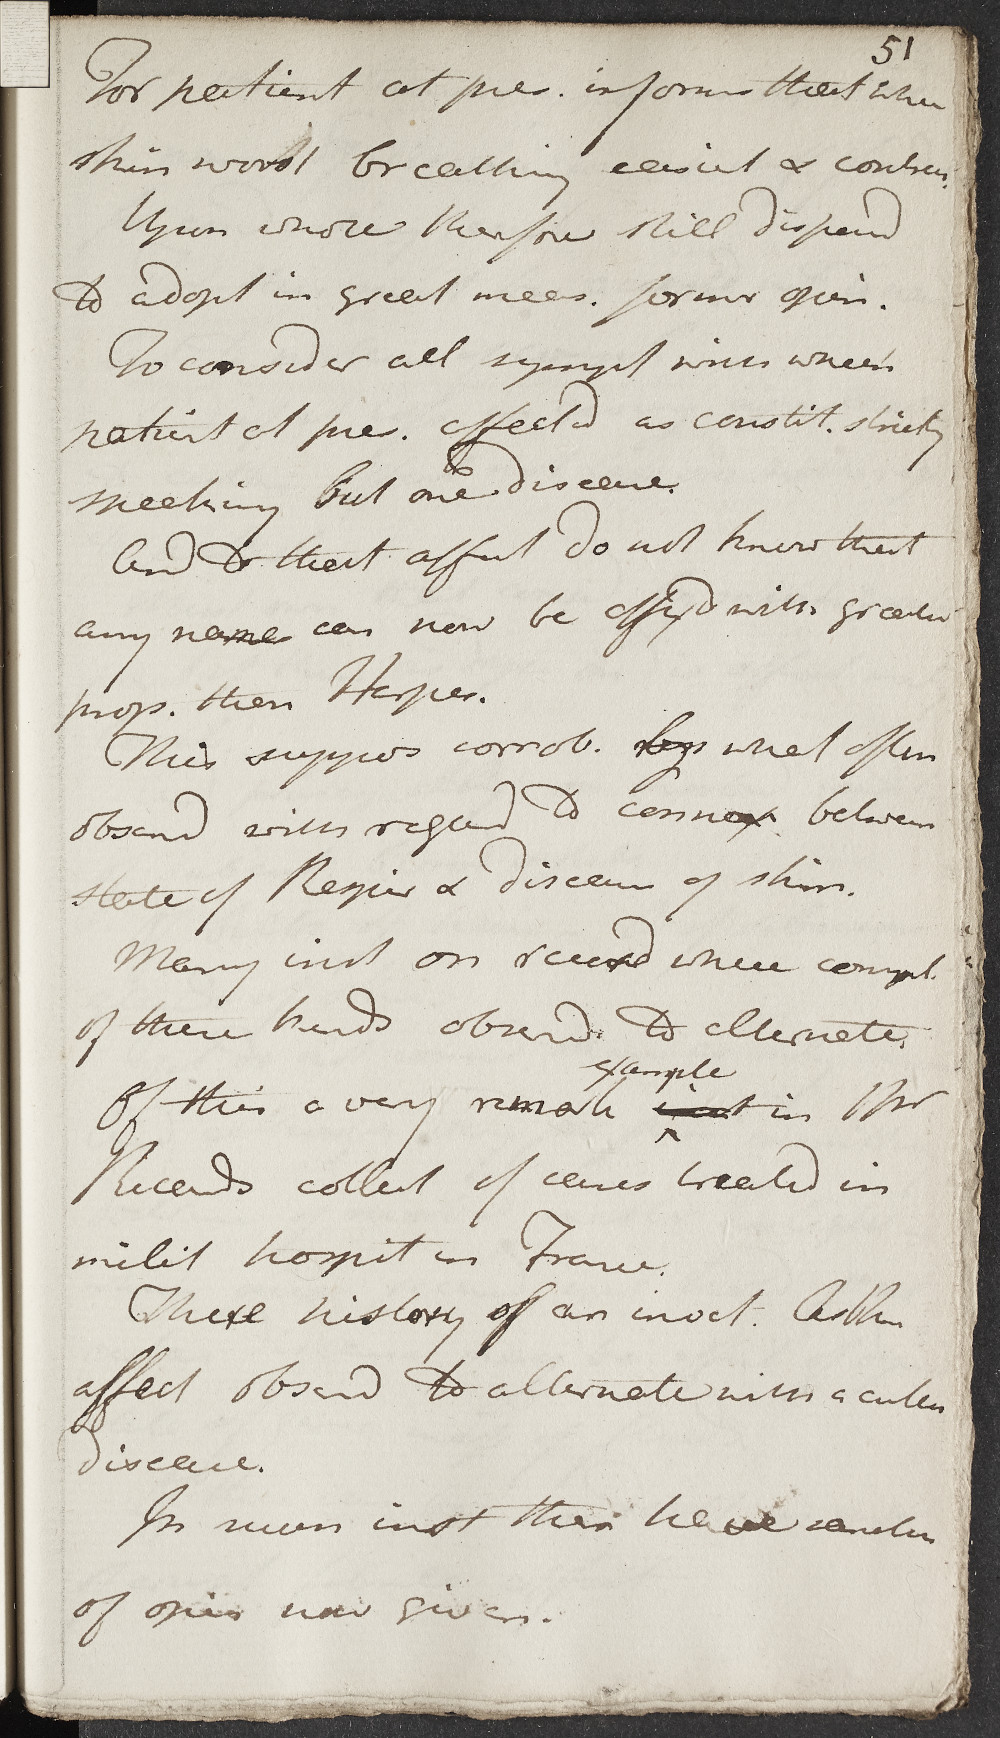 51
For patient at pres. informs that when
skin worst breathing easiest & contrar.
Upon whole therefore still dispond
to adopt in great meas. former opin.
To consider all sympt with which
patient at pres. affected as constit. strictly
speaking but one disease.
And to that affect do not know that
any name can now be affixd with greater
prop. then Herpes.
This suppos corrob. by what often
obserd with regard to connex. between
state of Respir & diseases of skin.
Many inst on record where compl.
of these kinds obserd. to alternate.
example
Of this a very remark inst in Mr
Records collect of cases treated in
milit hospit in France.
There history of an invet. Asthm
affect obserd to alternate with a cutan
disease.
In such inst then have
of opin now given.